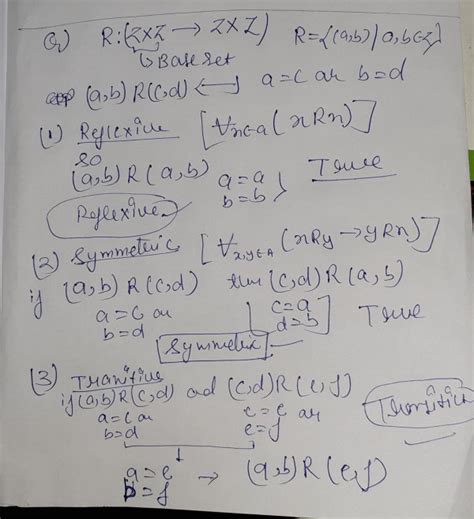 Q) R:(Z×Z → Z×Z) R={(a,b) | a,b∈Z}
↳ Base set
(a,b) R (c,d) ⟷ a=c or b=d
(1) Reflexive [∀x∈a (xRx)]
so
(a,b) R (a,b) a=a b=b } True
Reflexive
(2) Symmetric [∀x,y∈A (xRy → yRx)]
if (a,b) R (c,d) then (c,d) R (a,b)
a=c or c=a
b=d d=b True
Symmetric
(3) Tranitive
if (a,b) R (c,d) and (c,d) R (e,f)
a=c or c=e or
b=d e=f
a=e → (a,b) R (e,f)
b=f